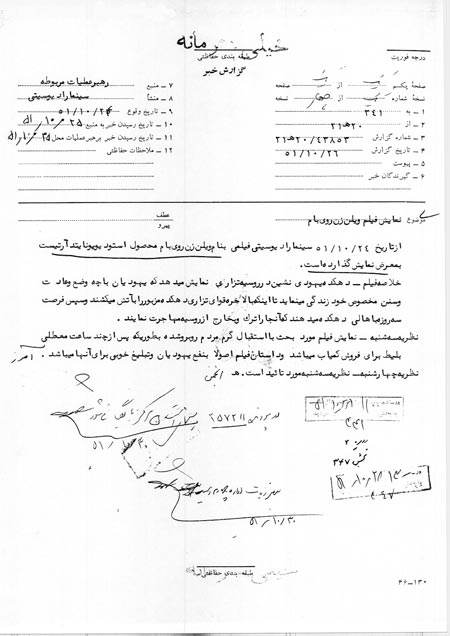 خیلی محرمانه
طبقه بندی حفاظتی
گزارش خبر
درجه فوریت
صفحه یکم از صفحه
نسخه شماره از نسخه
۱ – به ۳۴۱
۲ – از ۲۰هـ۲۱
۳ – شماره گزارش ۲۰/۴۳۸۵۳هـ۲۱
۴ – تاریخ گزارش ۵۱/۱۰/۲۶
۵ – پیوست
۶ – گیرندگان خبر
۷ – منبع رهبر عملیات مربوطه
۸ – منشأ سینما رادیوسیتی
۹ – تاریخ وقوع ۵۱/۱۰/۲۴
۱۰ – تاریخ رسیدن خبر به منبع ۵۱/۱۰/۲۵
۱۱ – تاریخ رسیدن خبر برهبر عملیات محل ۵۱/۱۰/۲۵
۱۲ – ملاحظات حفاظتی
موضوع نمایش فیلم ویلن زن روی بام
عطف
پیرو
از تاریخ ۵۱/۱۰/۲۴ سینما رادیوسیتی فیلمی بنام ویلن زن روی بام محصول استودیو یونایتد آرتیست
بمعرض نمایش گذارده است.
خلاصه فیلم – دهکده یهودی نشین در روسیه تزاری نمایش میدهد که یهودیان با چه وضع و عادت
وسنن مخصوص خود زندگی مینماید تا اینکه بالاخره قوای تزاری دهکده مزبور را بآتش میکشند وسپس فرصت
سه روزه باهالی دهکده میدهند که آنجا را ترک وبخارج از روسیه مهاجرت نمایند.
نظریه سه شنبه – نمایش فیلم مورد بحث با استقبال گرم مردم روبرو شده بطوریکه پس از چند ساعت معطلی
بلیط برای فروش کمیاب میباشد وداستان فیلم اصولاً بنفع یهودیان وتبلیغ خوبی برای آنها میباشد.
نظریه چهارشنبه – نظریه سه شنبه مورد تائید است.
۲۵۷۲۱۱
۵۱/۱۰/۳۰
۳۴۱
۳۴۷
۵۱/۱۰/۳۰
طبقه بندی حفاظتی
۴۶–۱۳۰